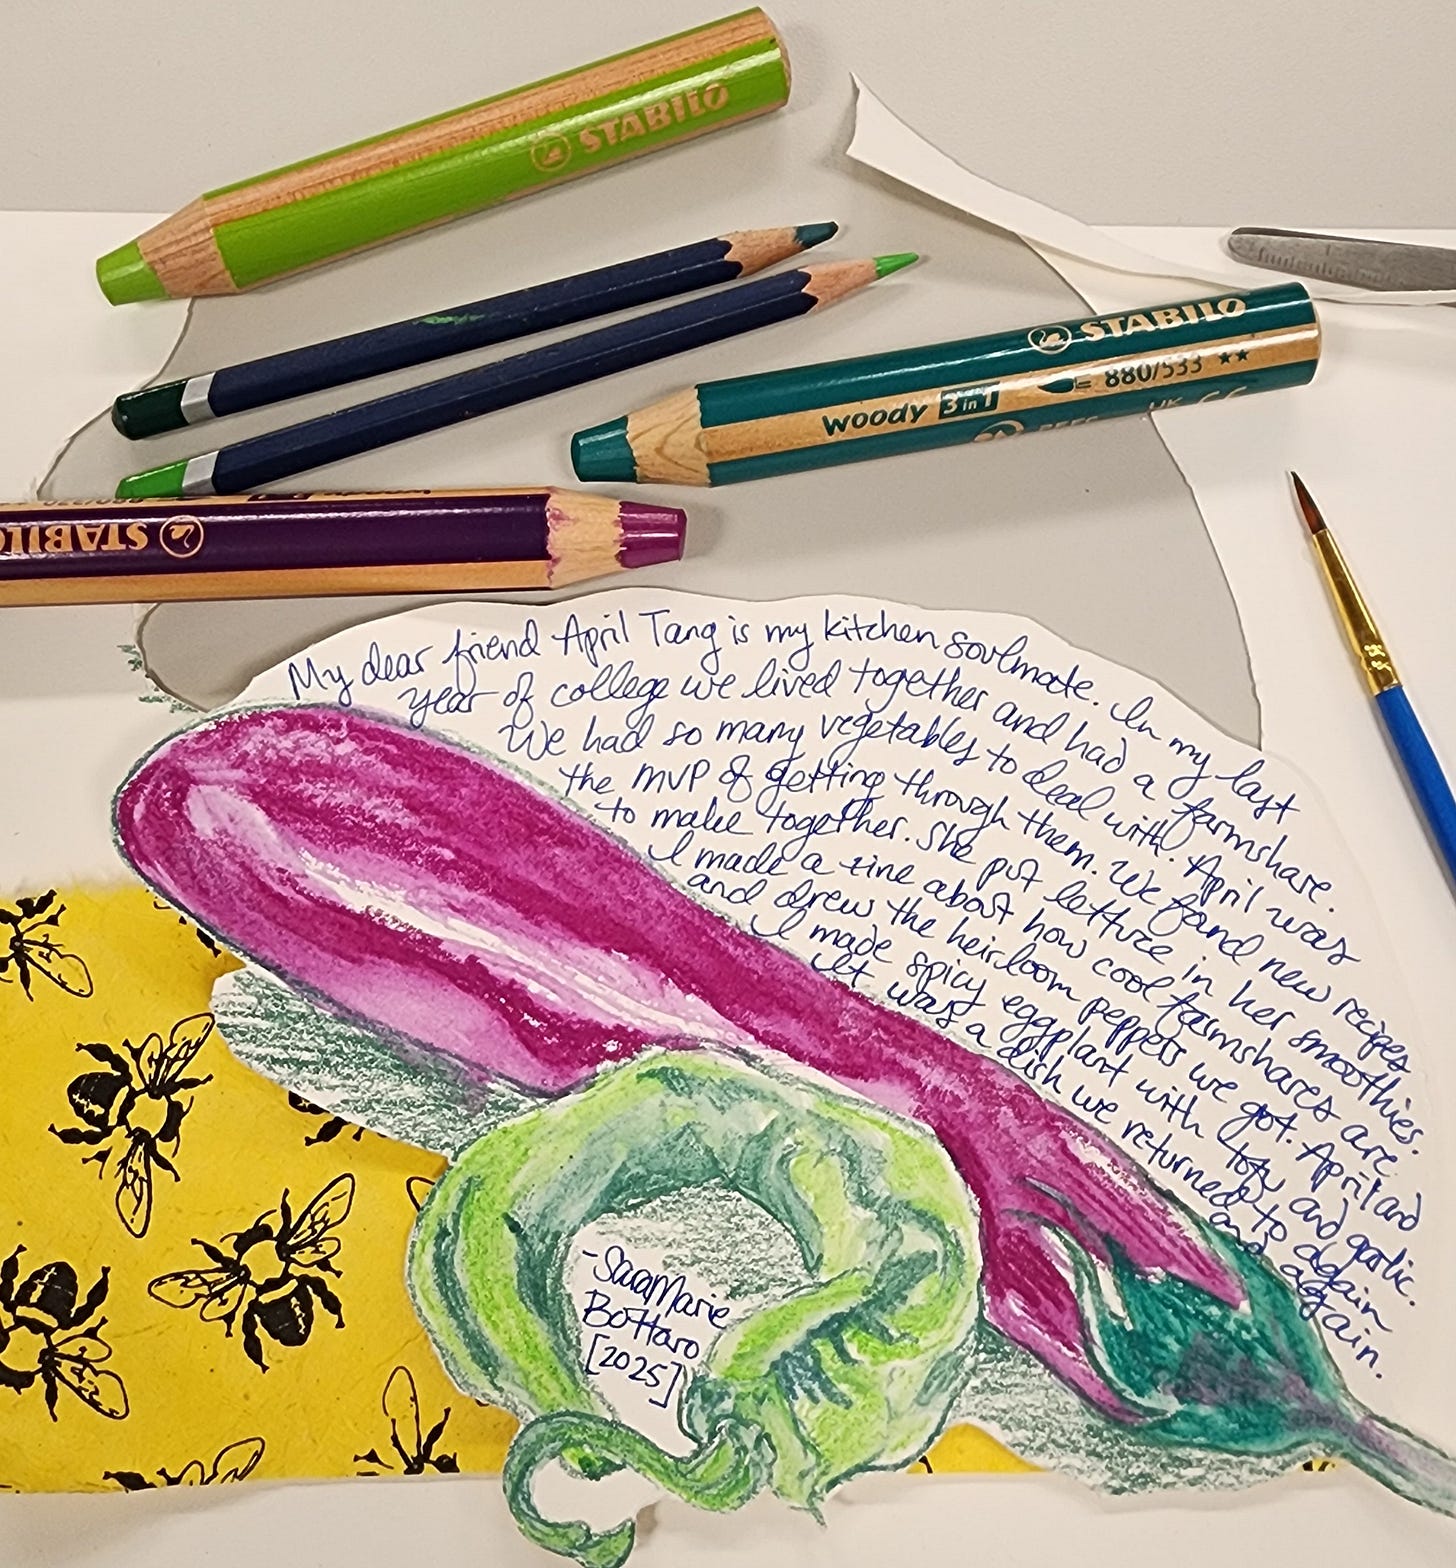 STABILO
STABILO
woody 3 in 1 880/533 **
STABILO
My dear friend April Tang is my kitchen soulmate. In my last
year of college we lived together and had a farmshare.
We had so many vegetables to deal with. April was
the MVP of getting through them. We found new recipes
to make together. She put lettuce in her smoothies.
I made a zine about how cool farmshares are
and drew the heirloom peppers we got. April and
I made spicy eggplant with tofu and garlic.
It was a dish we returned to again
and again.
-SaraMarie
Bottaro
[2025]